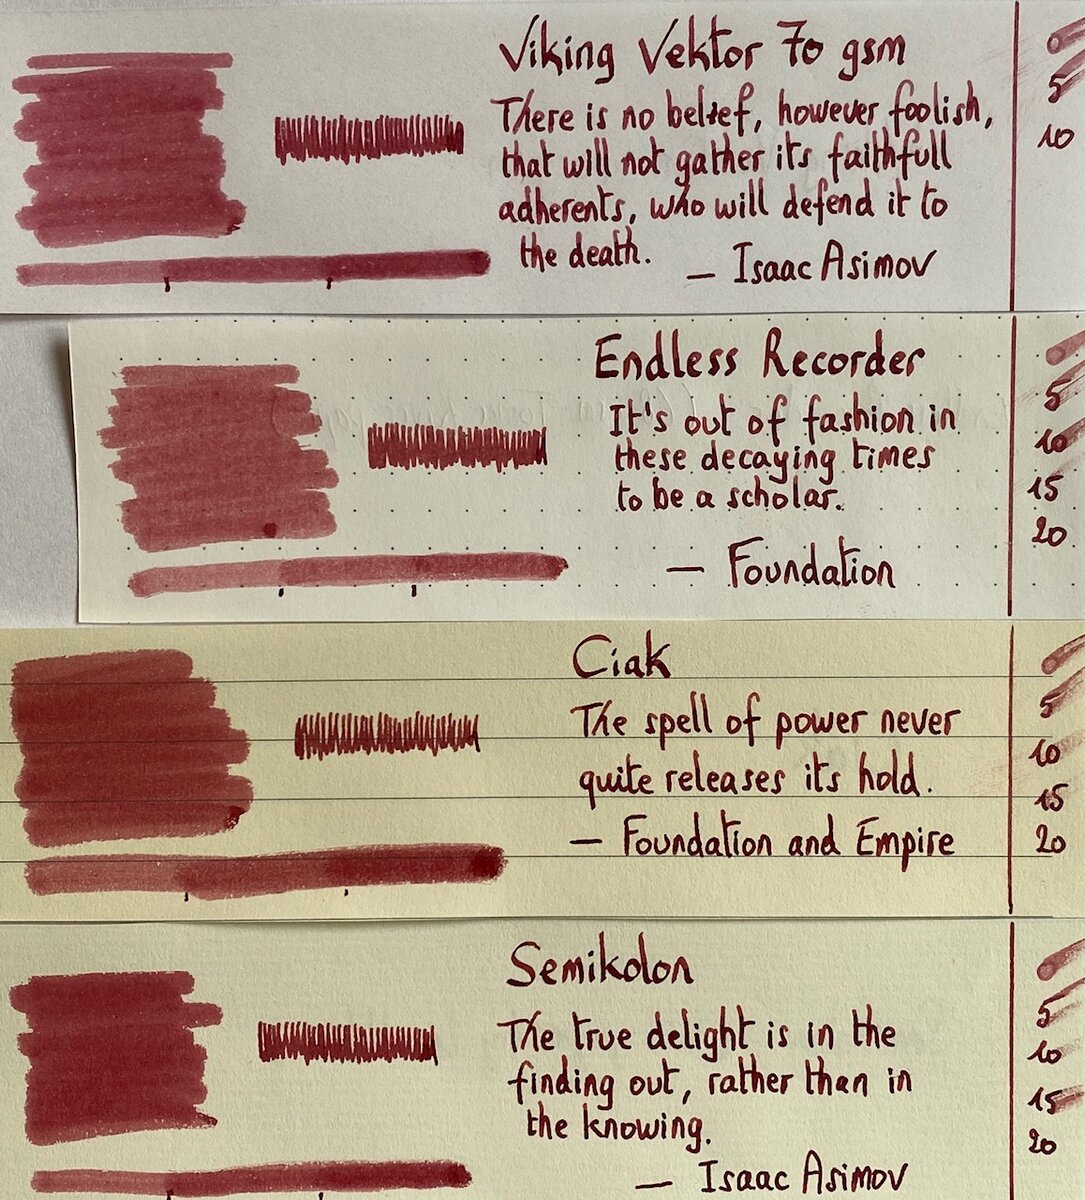 Viking Vektor 70 gsm
There is no belief, however foolish,
that will not gather its faithfull
adherents, who will defend it to
the death.
— Isaac Asimov
5
10
Endless Recorder
It's out of fashion in
these decaying times
to be a scholar.
— Foundation
5
10
15
20
Ciak
The spell of power never
quite releases its hold.
— Foundation and Empire
5
10
15
20
Semikolon
The true delight is in the
finding out, rather than in
the knowing.
— Isaac Asimov
5
10
15
20